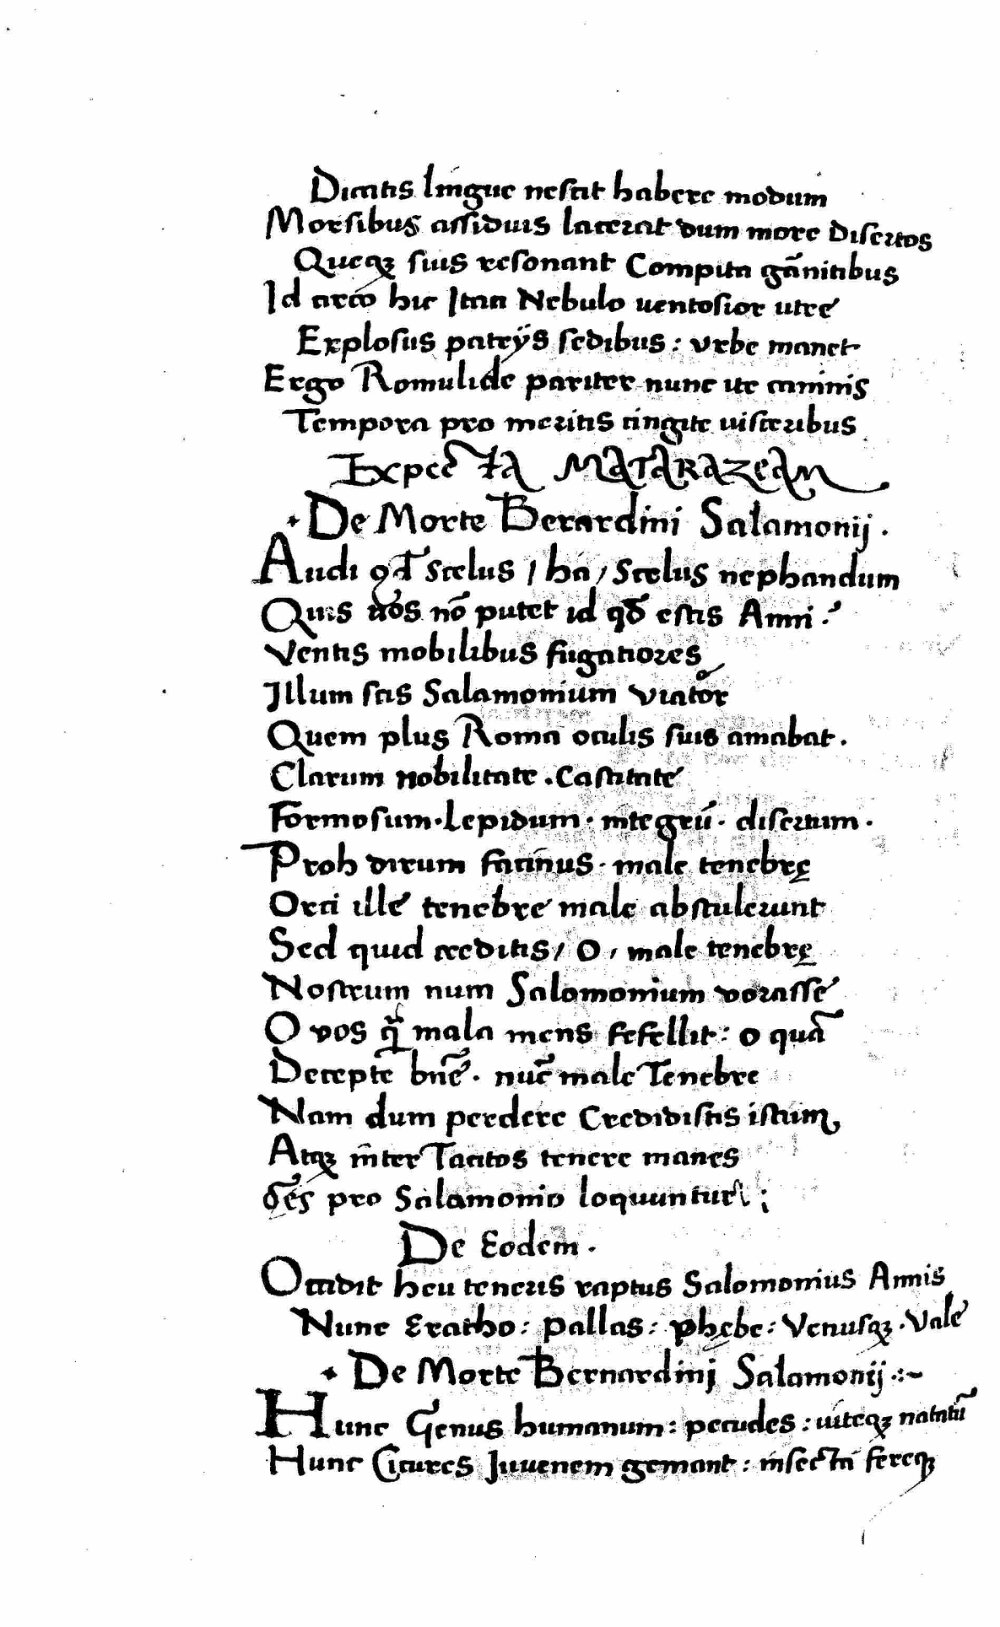 Dicatis lingue nescit habere modum
Morsibus assiduis lacerat dum more disertos
Queqȝ suis resonant Compita gānitibus
Id arcō hic Itaa Nebulo ventosior utre
Explosus patrijs sedibus: vrbe manet
Ergo Romulide pariter nunc ite caminis
Tempora pro meritis cingite visceribus
MATARAZEAM
De Morte Berardini Salamonij.
Audi qđ scelus / ha / scelus nephandum
Quis uos nō putet id qđ estis Anni?
Ventis mobilibus fugatiores
Illum scis Salamonium viator
Quem plus Roma oculis suis amabat.
Clarum nobilitate. Castitate
Formosum. Lepidum. integrū. disertum.
Proh dirum facinus. male tenebrę
Orci ille tenebre male abstulerunt
Sed quid creditis / O / male tenebrę
Nostrum num Salomonium vorasse
O vos mala mens fefellit: o quā
Decepte bn̄e. nūc male Tenebre
Nam dum perdere Credidistis istum,
Atqȝ inter Tacitos tenere manes
Oēs pro Salamonio loquuntur
De Eodem.
Occidit heu teneris raptus Salomonius Annis
Nunc Eratho: pallas: phębe: Venusqȝ. Vale
De Morte Bernardini Salamonij
Hunc Genus humanum: pecudes: uiteqȝ natatū
Hunc Cicures Juvenem gemant: insecta fereqȝ